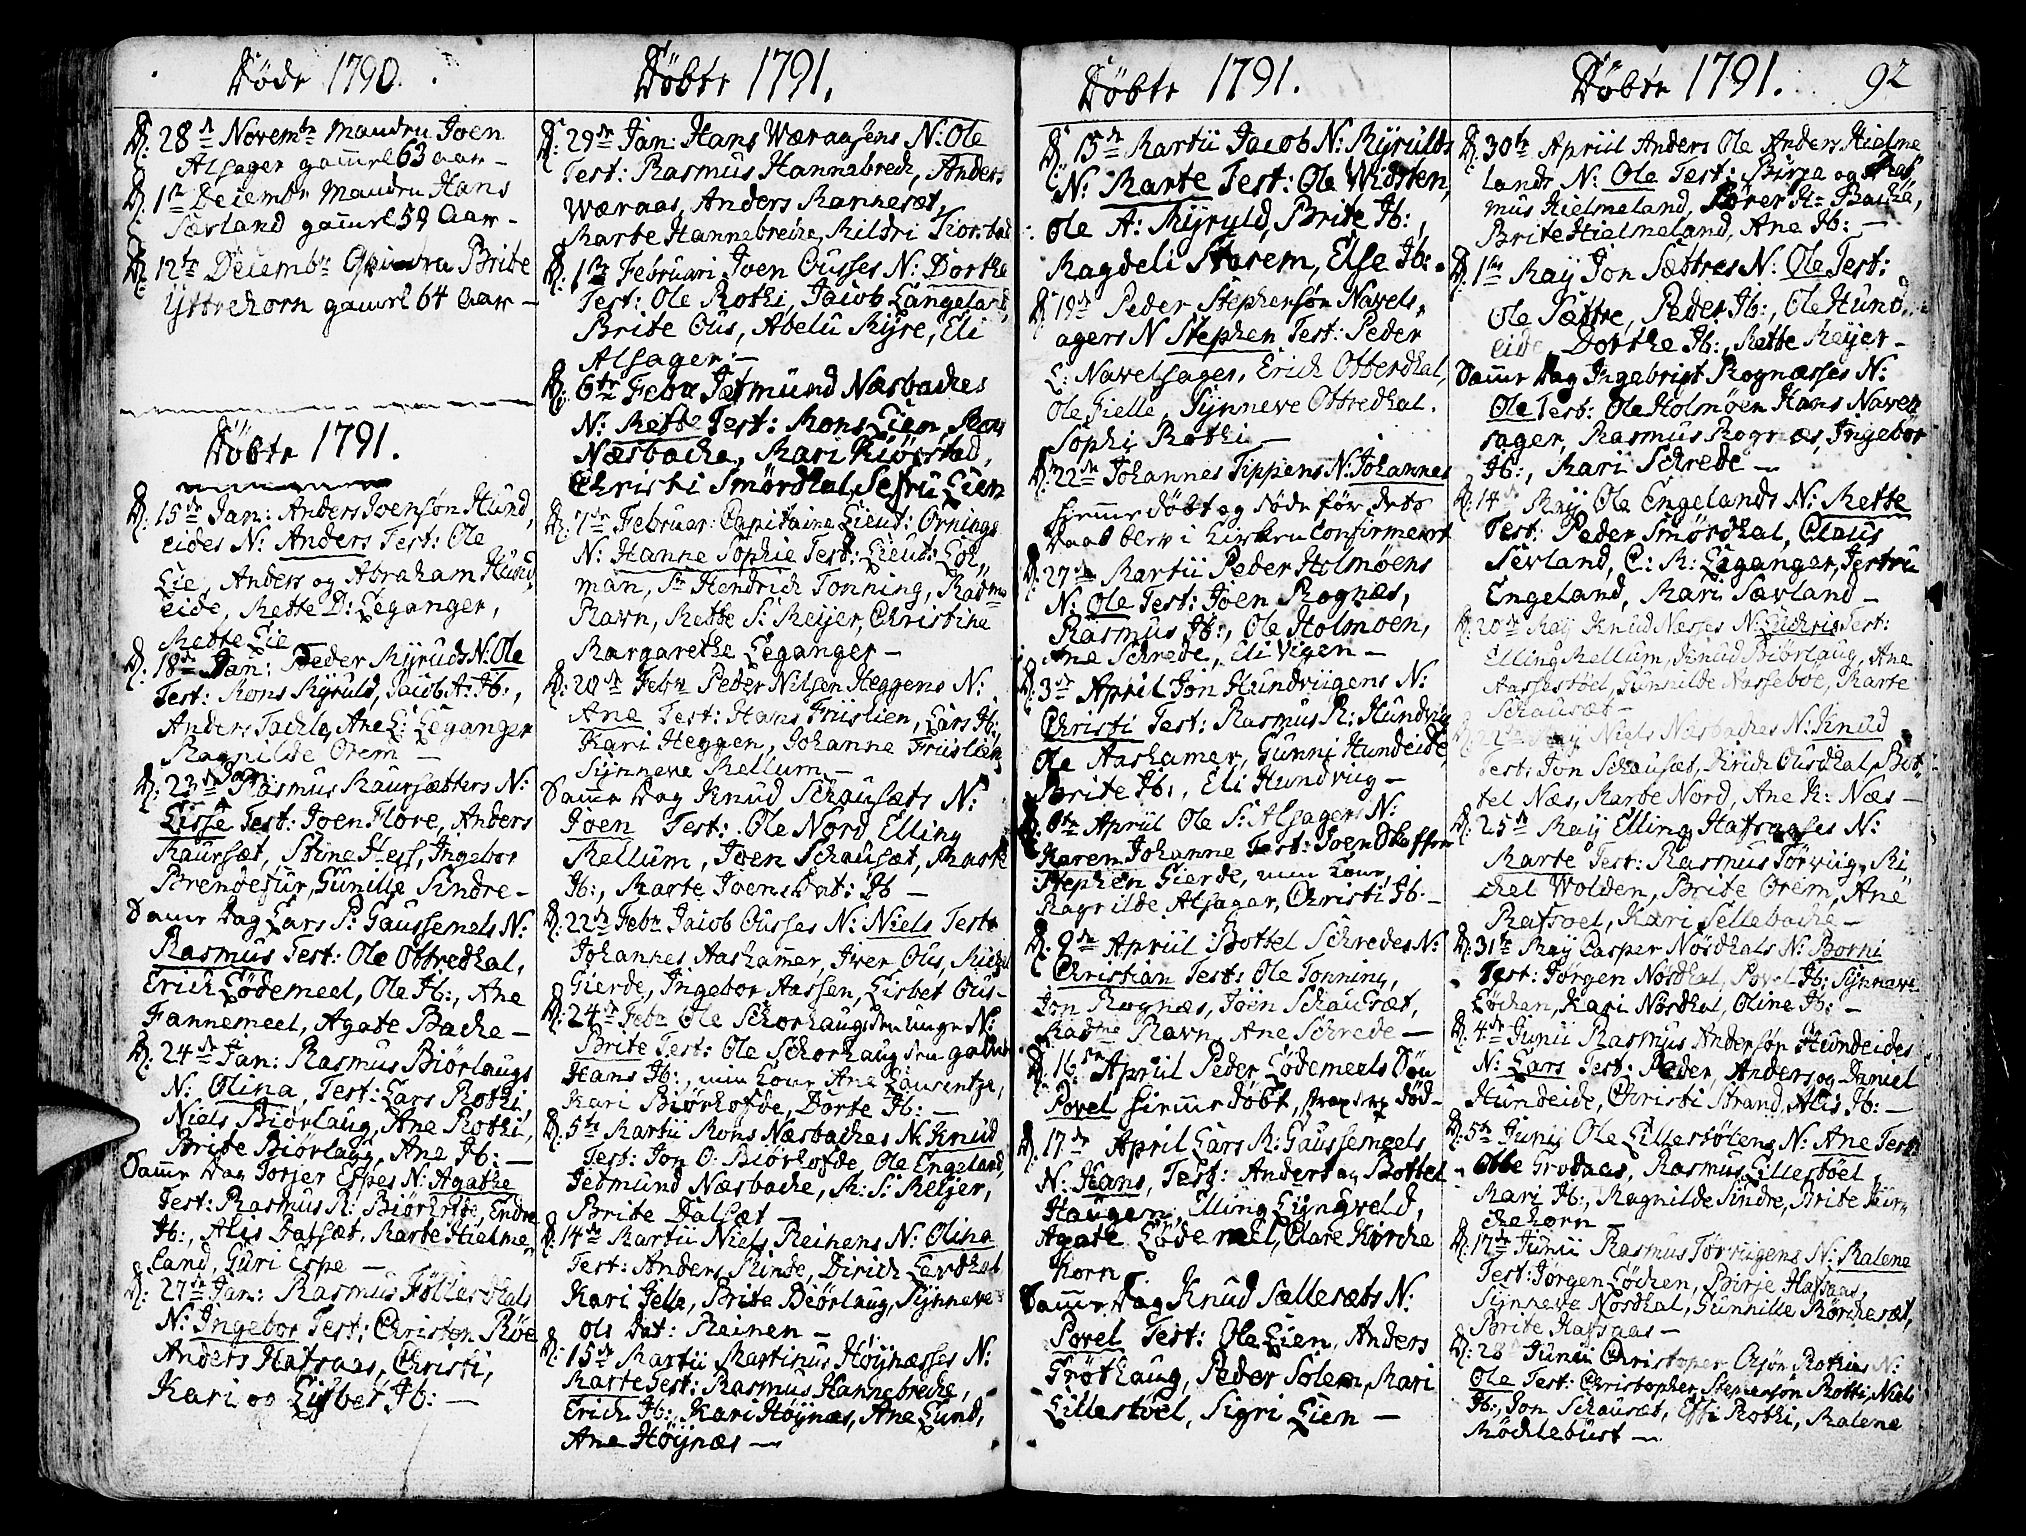 Døde 1790.
D: 28de Novembr Manden Joen
Alsager gammel 63 aar
D: 1ste Decembr Manden Hans
Sævland gammel 59 aar
D: 12te Decembr Qvinden Brite
Yttrehorn gammel 64 aar
Døbte 1791.
D: 15de Jan: Anders Joensøn Hund,
eides N: Anders Test: Ole
Lie, Anders og Abraham Hund
eide, Mette D: Leganger,
Mette Lie
D: 18de Jan: Peder Myrulds N: Ole
Test: Mons Myruld, Jacob A: Ib:,
Anders Tachle, Ane L: Leganger
Magnilde Orem
D: 23de Jan: Rasmus Maursætters N:
Lisse Test: Joen Flore, Anders
Maursæt, Stine Hess, Ingebor
Brendefur, Gunille Sindre
Samme Dag Lars P: Gaussemels N:
Rasmus Test: Ole Ottredhal,
Erich Lødemeel, Ole Ib:, Ane
Fannemeel, Agate Bache
D: 24de Jan: Rasmus Biørlaugs
N: Olina, Test: Lars Rothi,
Niels Biørlaug, Ane Rothi,
Brite Biørlaug, Ane Ib:
Samme Dag Torjer Espes N: Agathe
Test: Rasmus R: Biørhofde, Endre
Ib:, Alis Dalsæt, Marte Hielme
land, Guri Espe
D: 27de Jan: Rasmus Følles dhals
N: Ingebor Test: Christen Møe
Anders Hafsaas, Christi,
Kari og Lisbet Ib:
Døbte 1791.
D: 29de Jan: Hans Wæraasens N: Ole
Test: Rasmus Hannebrech, Anders
Wæraas, Anders Rannesæt,
Marte Hannebreche, Mildri Kiørstad
D: 1ste Februari Joen Ousses N: Dorthe
Test: Ole Rothi, Jacob Langeland,
Brite Ous, Abelu Myre, Eli
Alsager
D: 6te Febr Jetmund Næsbaches
N: Mette Test: Mons Lien, Mons
Næsbache, Mari Kiørstad,
Christi Smørdhal, Sefru Lien
D: 7de Februar: Capitaine Lieut: Ornings
N: Hanne Sophie Test: Lieut: Col,,
man, Sr Hendrich Tonning, Madme
Ravn, Mette S: Meijer, Christine
Margarethe Leganger
D: 20de Febr Peder Nilsen Heggens N:
Ane Test: Hans Friislien, Lars Ib:
Kari Heggen, Johanne Friislien
Synneve Mellum
Samme Dag Knud Schausæts N:
Joen Test: Ole Nord, Elling
Mellum, Joen Schausæt, Marte
Ib:, Marte Joens Dat: Ib
D: 22de Febr Jacob Ousses N: Niels Test:
Johannes Aashamer, Iver Ous, Michel
Gierde, Ingebor Aassen, Lisbet Ous
D: 24de Febr Ole Schorhaug den unge N:
Brite Test: Ole Schorhaug den gamle
Hans Ib:, min Kone Ane Laurentze,
Kari Biørhofde, Dorte Ib:
D: 5te Martii Mons Næsbaches N: Knud
Test: Jon O: Biørhofde, Ole Engeland,
Jedmund Næsbache, M: S: Meijer,
Brite Dalsæt
D: 14de Martii Niels Reinens N: Olina
Test: Anders Rinde, Dirich Lardhal
Kari Jelle, Brite Biørlaug, Synneve
Ols Dat: Reinen
D: 15de Martii Martinus Høynæsses N:
Marte Test: Rasmus Hannebreche,
Erich Ib:, Kari Høynæs, Ane Lund,
Ane Høynæs
Døbte 1791.
D: 15de Martii Jacob N: Myrulds
N: Marte Test: Ole Widsten,
Ole A: Myruld, Brite Ib:,
Magdeli Starem, Else Ib:
D: 19de Peder Stephensøn Navels,
agers N Stephen Test: Peder
L: Navelsager, Erich Otterdhal,
Ole Fielle, Synneve Ottredhal.
Sophi Rothi
D: 22de Johannes Tippens N: Johannes
hjemme døbt og døde før dets
Daab blev i Kirken confirmeret
D: 27de Martii Peder Holmøens
N: Ole Test: Joen Rognæs,
Rasmus Ib:, Ole Holmøen,
Ane Schrede, Eli Vigen
D: 3de April Jon Hundviigens N:
Christi Test: Rasmus R: Hundviig
Ole Aashamer, Gunni Hundeide
Brite Ib:, Eli Hundvug
D: 6te April Ole S: Alsagers N:
Karem Johanne Test: Joen
Stephen Gierde, min Kone,
Ragnilde Alsager, Christi Ib:
D: 9de April Bottel Schredes N:
Christian Test: Ole Tonning,
Jon Rognæs, Joen Schausæt,
Madme Ravn, Ane Schrede
D: 16de April Peder Lødemeels Søn
Povel hiemme døbt, strax død
D: 17de April Lars R: Gaussemeels
N: Hans, Test: Anders og Bottel
Haugen, Elling Lyngveld,
Agate Lødemeel, Clare Kirche
Korn
Samme Dag Knud Sællesæts N:
Povel Test: Ole Lien, Anders
Trøthaug, Peder Solem, Mari
Lillestøel, Sigri Lien
Døbte 1791.
92
D: 30te April Anders Ole Anders Hielme
lands N: Ole Test: Birja og Ras,
mus Hielmeland, Bører H: Bache,
Brite Hielmeland, Ane Ib:
D: 1ste May Jon Sættres N: Ole Test:
Ole Sættre, Peder Ib:, Ole Hund,
eide, Dorthe Ib:, Mette Meijer
Samme Dag Ingebrigt Rognæsses N:
Ole Test: Ole Holmøen Hans Navel
sager, Rasmus Rognæs, Ingebor
Ib:, Mari Schrede
D: 14de May Ole Engelands N: Mette
Test: Peder Smørdhal, Claus
Sevland, C: M: Leganger, Jertru
Engeland, Mari Sævland
D: 20de May Knud Næsses N: Test:
Elling Mellum, Knud Biørlaug, Ane
Aassestøel, Gunnilde Nasseboe, Marte
Schausæt
D: 22de May Niels Næsbaches N: Knud
Test: Jon Schausæt, Dirich Ousdhal, Bot,
tel Næs, Marte Nord, Ane K: Næs
D: 25de May Elling Hafsaases N:
Marte Test: Rasmus Tørviig, Mi
chel Wolden, Brite Orem, Ane
Rafsvel, Kari Sellebache
D: 31te May Casper Nosdhals N: Borni
Test: Jorgen Nosdhal, Povel Ib: Synneve
Løchen, Kari Nosdhal, Oline Ib:
D: 4de Junii Rasmus Andersøn Hundeides
N: Lars Test: Peder, Anders og Daniel
Hundeide, Christi Strand, Alis Ib:
D: 5te Junii Ole Lillestølens N: Ane Test:
Otte Grodaas, Rasmus Lillestøel
Mari Ib:, Magnilde Sindre, Brite Kir,
chehorn
D: 17de Junii Rasmus Tørviigens N: Malene
Test: Jørgen Løchen, Birje Hafsaas,
Synneve Nosdhal, Gunnille Mørchesæt,
Brite Hafsaas
D: 28de Junii Christopher Olsøn Rothies N:
Ole Test: Christopher Stephensøn Rotti, Niels
Ib:, Jon Schausæt, Effi Rothi, Malene
Møchlebust